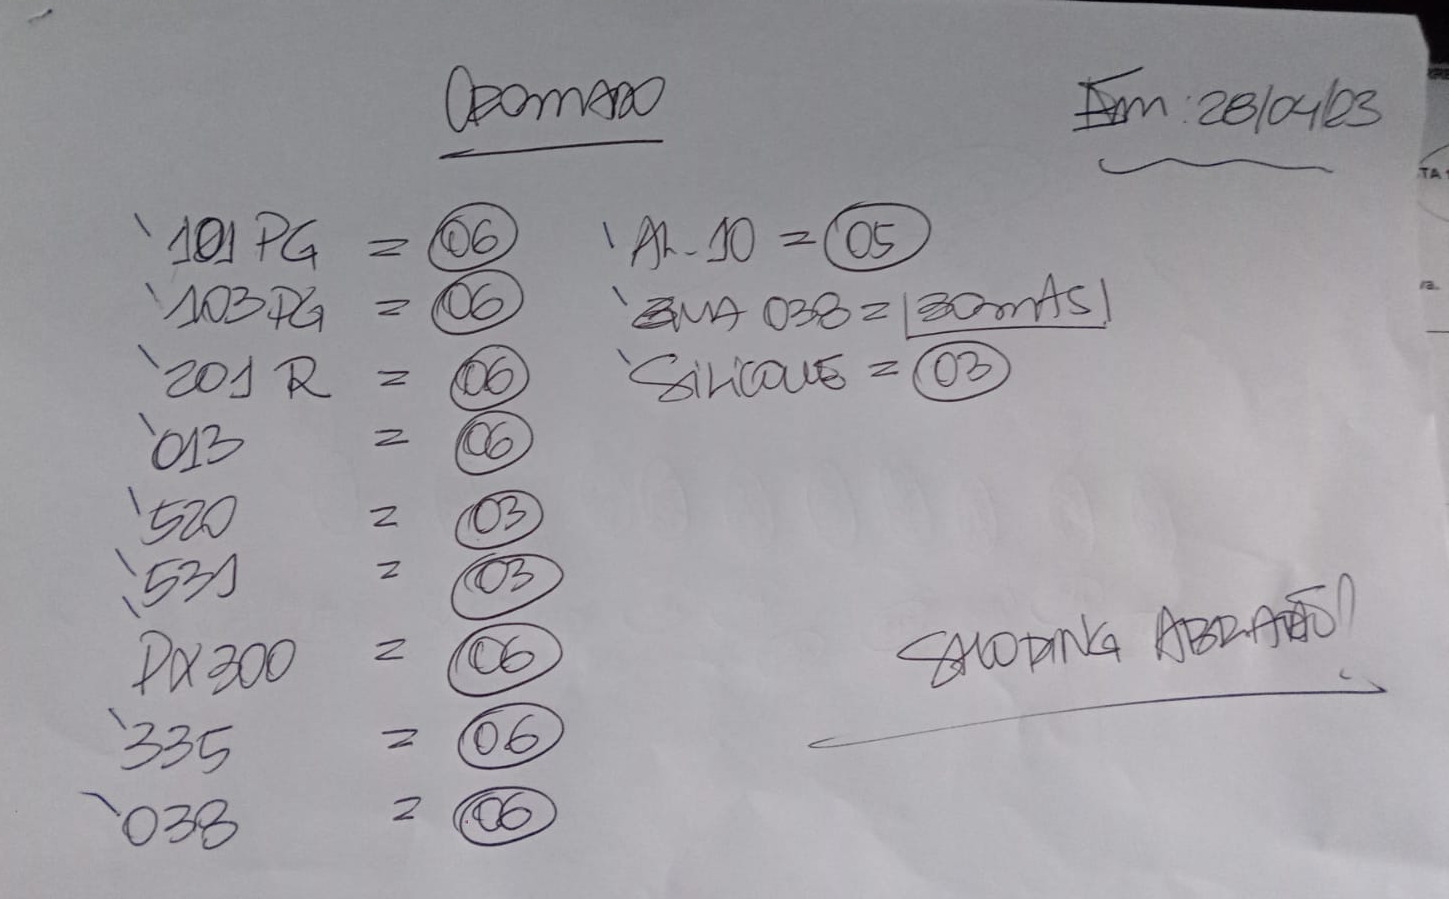 Em: 28/04/23
101 PG = 06
103 PG = 06
201 R = 06
013 = 06
520 = 03
531 = 03
PX 300 = 06
335 = 06
038 = 06
AL-10 = 05
038 = 30mAS
SiLiCONE = 03
TA
ra.